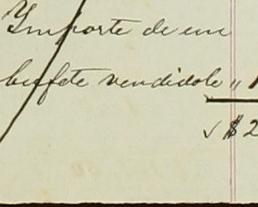 Importe de un
bufete vendidole "
$2